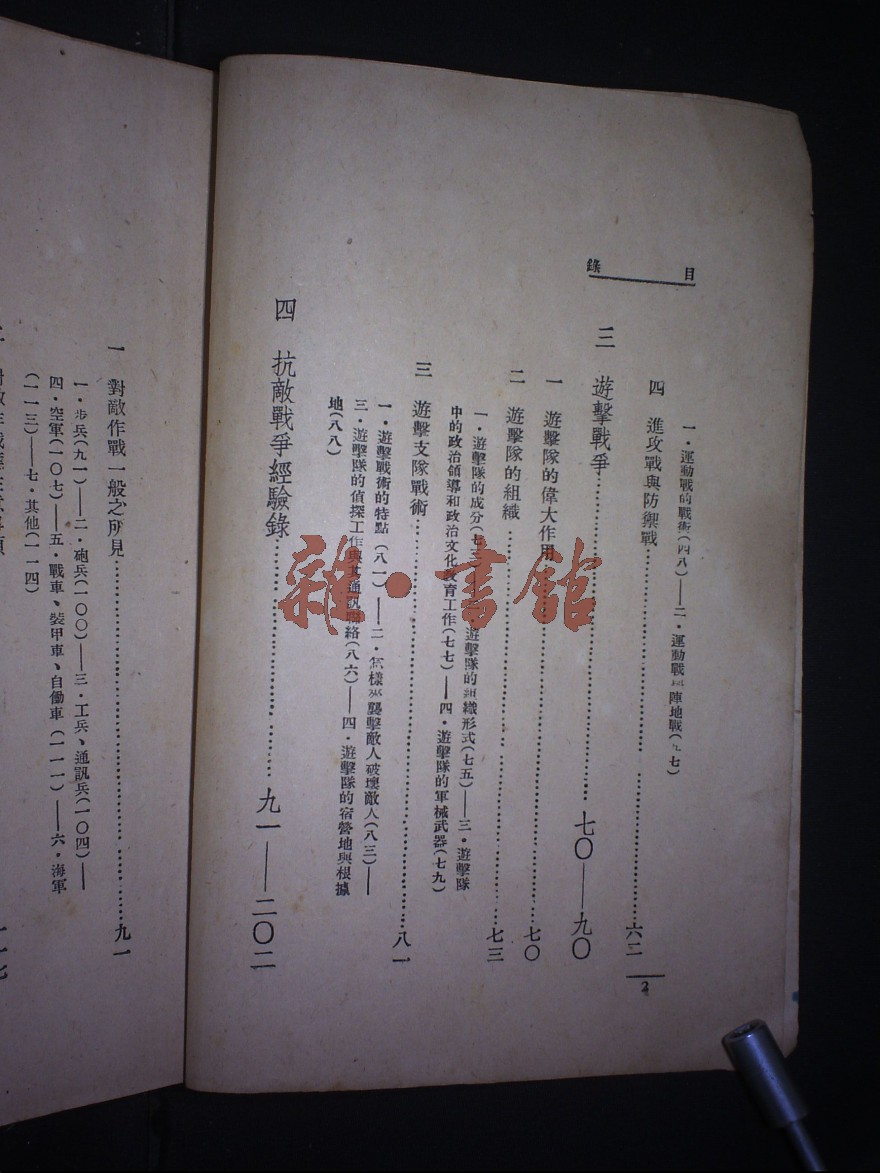 目錄
一・運動戰的戰術(四八)——二・運動戰 陣地戰( 七)
四 進攻戰與防禦戰……六二
三 遊擊戰爭……七〇——九〇
一 遊擊隊的偉大作用……七〇
二 遊擊隊的組織……七三
一・遊擊隊的成分(七三 ・遊擊隊的組織形式(七五)——三・遊擊隊
中的政治領導和政治文化教育工作(七七)——四・遊擊隊的軍械武器(七九)
三 遊擊支隊戰術……八一
一・遊擊戰術的特點(八一)——二・怎樣 襲擊敵人破壞敵人(八三)——
三・遊擊隊的偵探工作與其通訊聯絡(八六)——四・遊擊隊的宿營地與根據
地(八八)
四 抗敵戰爭經驗錄……九一——二〇二
2
一 對敵作戰一般之所見……九一
一・步兵(九一)——二・砲兵(一〇〇)——三・工兵、通訊兵(一〇四)——
四・空軍(一〇七)——五・戰車、裝甲車、自働車(一一一)——六・海軍
(一一三)——七・其他(一一四)
雜・書館